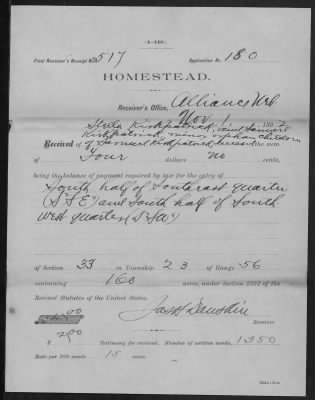 (4—140.)
Final Receiver's Receipt No. 517 Application No. 180
HOMESTEAD.
Receiver's Office, Alliance Neb
Nov 1, 1892
Received of Stella Kirkpatrick, and Samuel
Kirkpatrick, minor orphan children
of Samuel Kirkpatrick, deceased the sum
of Four dollars no cents,
being the balance of payment required by law for the entry of
South half of Southeast quarter
(S½SE¼) and South half of South
west quarter (S½SW¼)
of Section 33 in Township 23 of Range 56
containing 160 acres, under Section 2291 of the
Revised Statutes of the United States.
Jas H Danskin
Receiver.
$ 2.00 Testimony fee received. Number of written words, 1350
Rate per 100 words 15 cents.